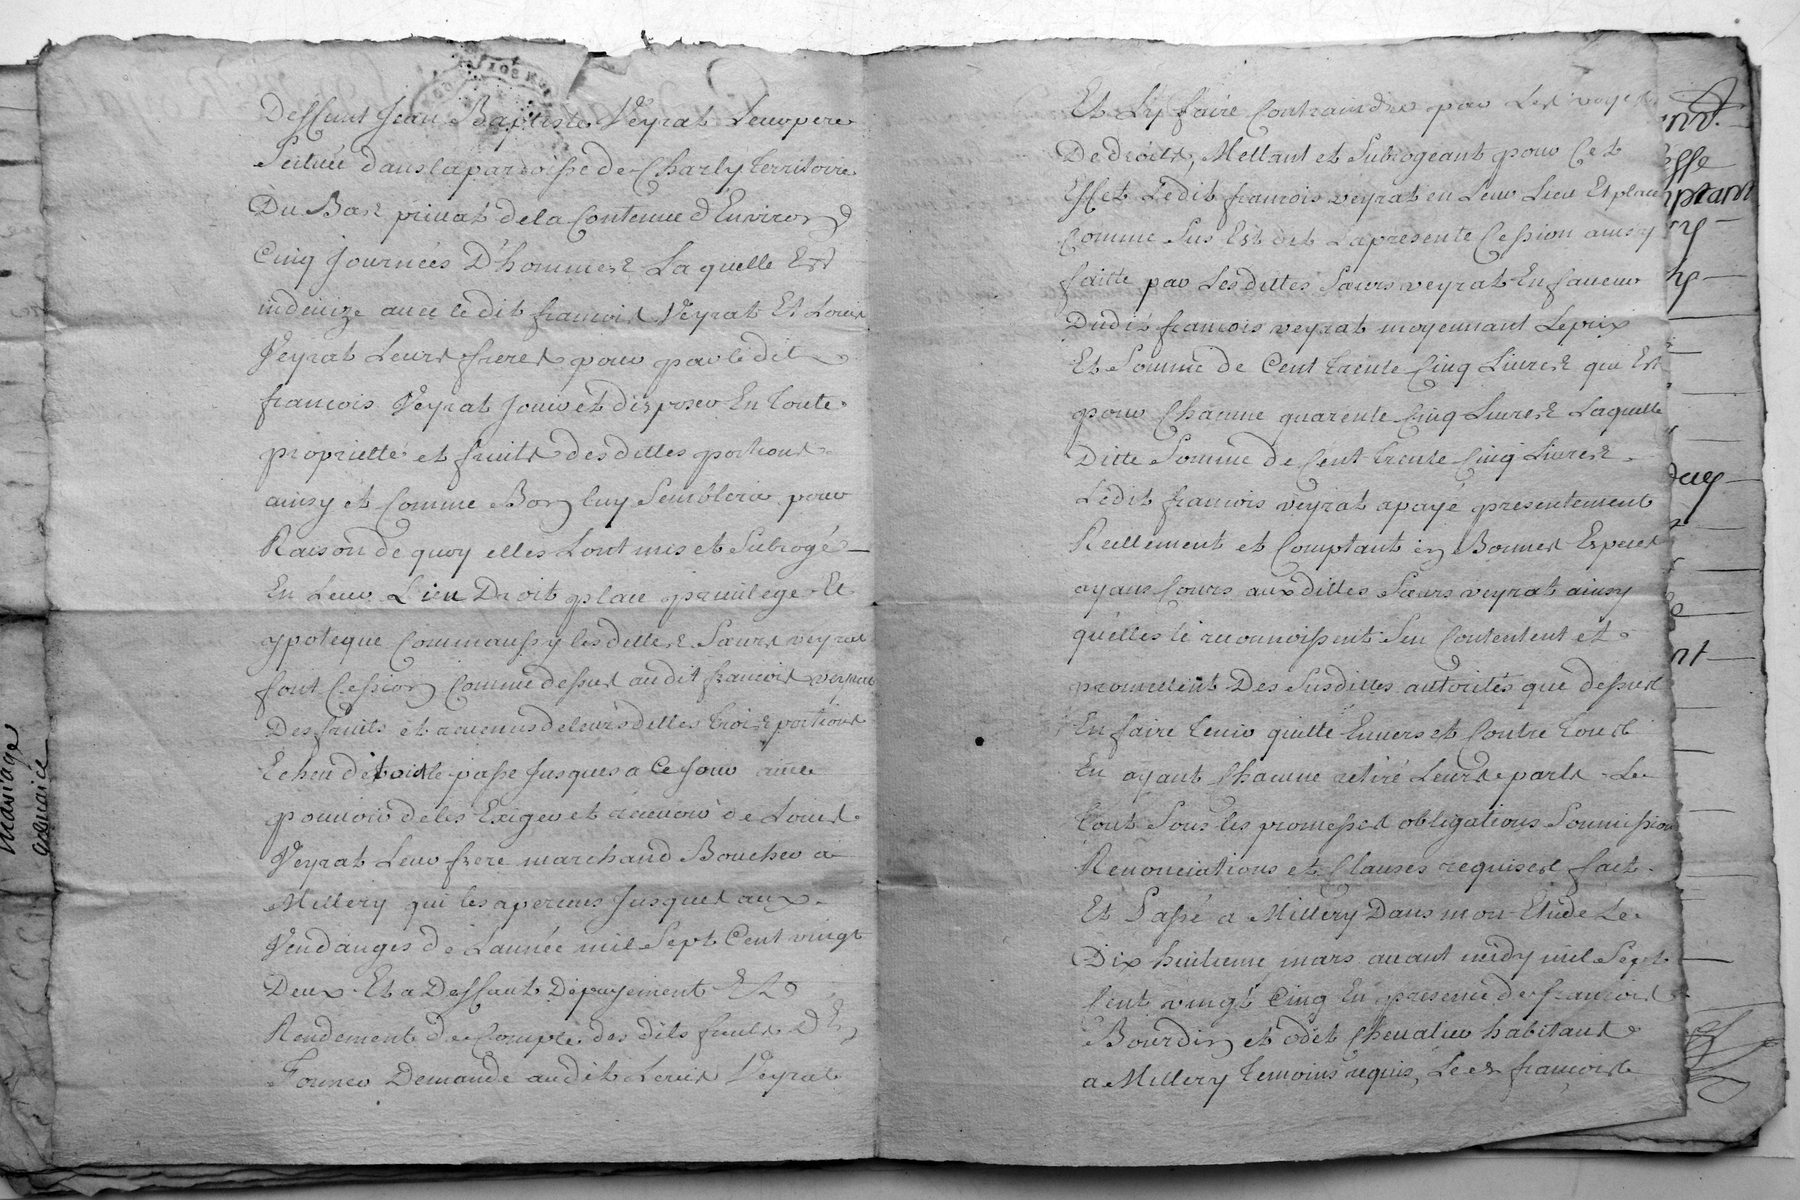 Deffunt Jean Baptiste Veyrat Leur pere
Scituée dans la parroisse de Charly territoire
Du Bas privat de la Contenue d'Environ
Cinq Journées D'hommes Laquelle Est
indivize avec le dit francois Veyrat Et Louis
Veyrat Leurs freres pour par le dit
francois Veyrat Jouir et disposer En toute
proprietté et fruits desdittes portions
ainsy et Comme Bon luy Semblera pour
Raison de quoy elles Lont mis et Subrogé
En Leur Lieu Droit place privilege Et
ypoteque Comm'aussy lesdittes Sœurs veyrat
font Cession Comme dessus audit francois veyrat
Des fruits et revenus de leursdittes trois portions
Echeu de tout le passe Jusques a Ce Jour avec
pouvoir de les Exiger et recevoir de Louis
Veyrat Leur frere marchand Boucher a
Millery qui les a perceus Jusques aux
Vendanges de Lannée mil Sept Cent vingt
Deux Et a Deffaut De payement Et
Rendement de Compte des dits fruits D'En
Former Demande audit Louis Veyrat
Et Ly faire Contraindre par Les voyes
De droits, Mettant et Subrogeant pour Cet
Effet Ledit francois veyrat en Leur Lieu Et place
Comme Sus Est dit La presente Cession ainsy
faitte par Lesdittes Sœurs veyrat En faveur
Dudit francois veyrat moyennant Le prix
Et Somme de Cent trente Cinq Livres qui Est
pour Chacune quarente Cinq Livres Laquelle
Ditte Somme de Cent trente Cinq Livres
Ledit francois veyrat a payé presentement
Reellement et Comptant en Bonnes Especes
ayans Cours aux dittes Sœurs veyrat ainsy
qu'elles le reconnoissent Sen Contentent et
promettent Des Susdittes autorités que dessus
En faire tenir quitte Envers et Contre tous
En ayant Chacune retiré Leurs parts Le
tout Sous les promesses obligations Soumissions
Renonciations et Clauses requises fait
Et Passé a Millery Dans mon Etude Le
Dix huitieme mars avant midy mil Sept
Cent vingt Cinq En presence de francois
Bourdin et odet Chevalier habitans
a Millery temoins requis, Lesd francois
mariage